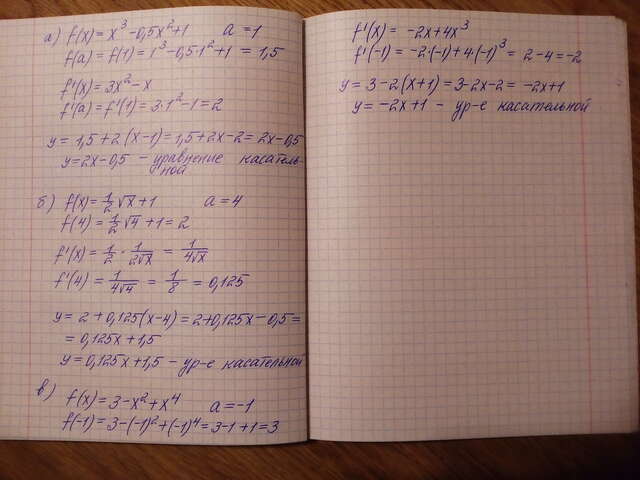 а) f(x) = x³ - 0,5x² + 1 a = 1
f(a) = f(1) = 1³ - 0,5·1² + 1 = 1,5
f'(x) = 3x² - x
f'(a) = f'(1) = 3·1² - 1 = 2
y = 1,5 + 2(x-1) = 1,5 + 2x - 2 = 2x - 0,5
y = 2x - 0,5 - уравнение касатель-
ной
б) f(x) = 1/2 √x + 1 a = 4
f(4) = 1/2 √4 + 1 = 2
f'(x) = 1/2 · 1/(2√x) = 1/(4√x)
f'(4) = 1/(4√4) = 1/8 = 0,125
y = 2 + 0,125(x-4) = 2 + 0,125x - 0,5 =
= 0,125x + 1,5
y = 0,125x + 1,5 - ур-е касательной
в) f(x) = 3 - x² + x⁴ a = -1
f(-1) = 3 - (-1)² + (-1)⁴ = 3 - 1 + 1 = 3
f'(x) = -2x + 4x³
f'(-1) = -2·(-1) + 4·(-1)³ = 2 - 4 = -2
y = 3 - 2(x+1) = 3 - 2x - 2 = -2x + 1
y = -2x + 1 - ур-е касательной